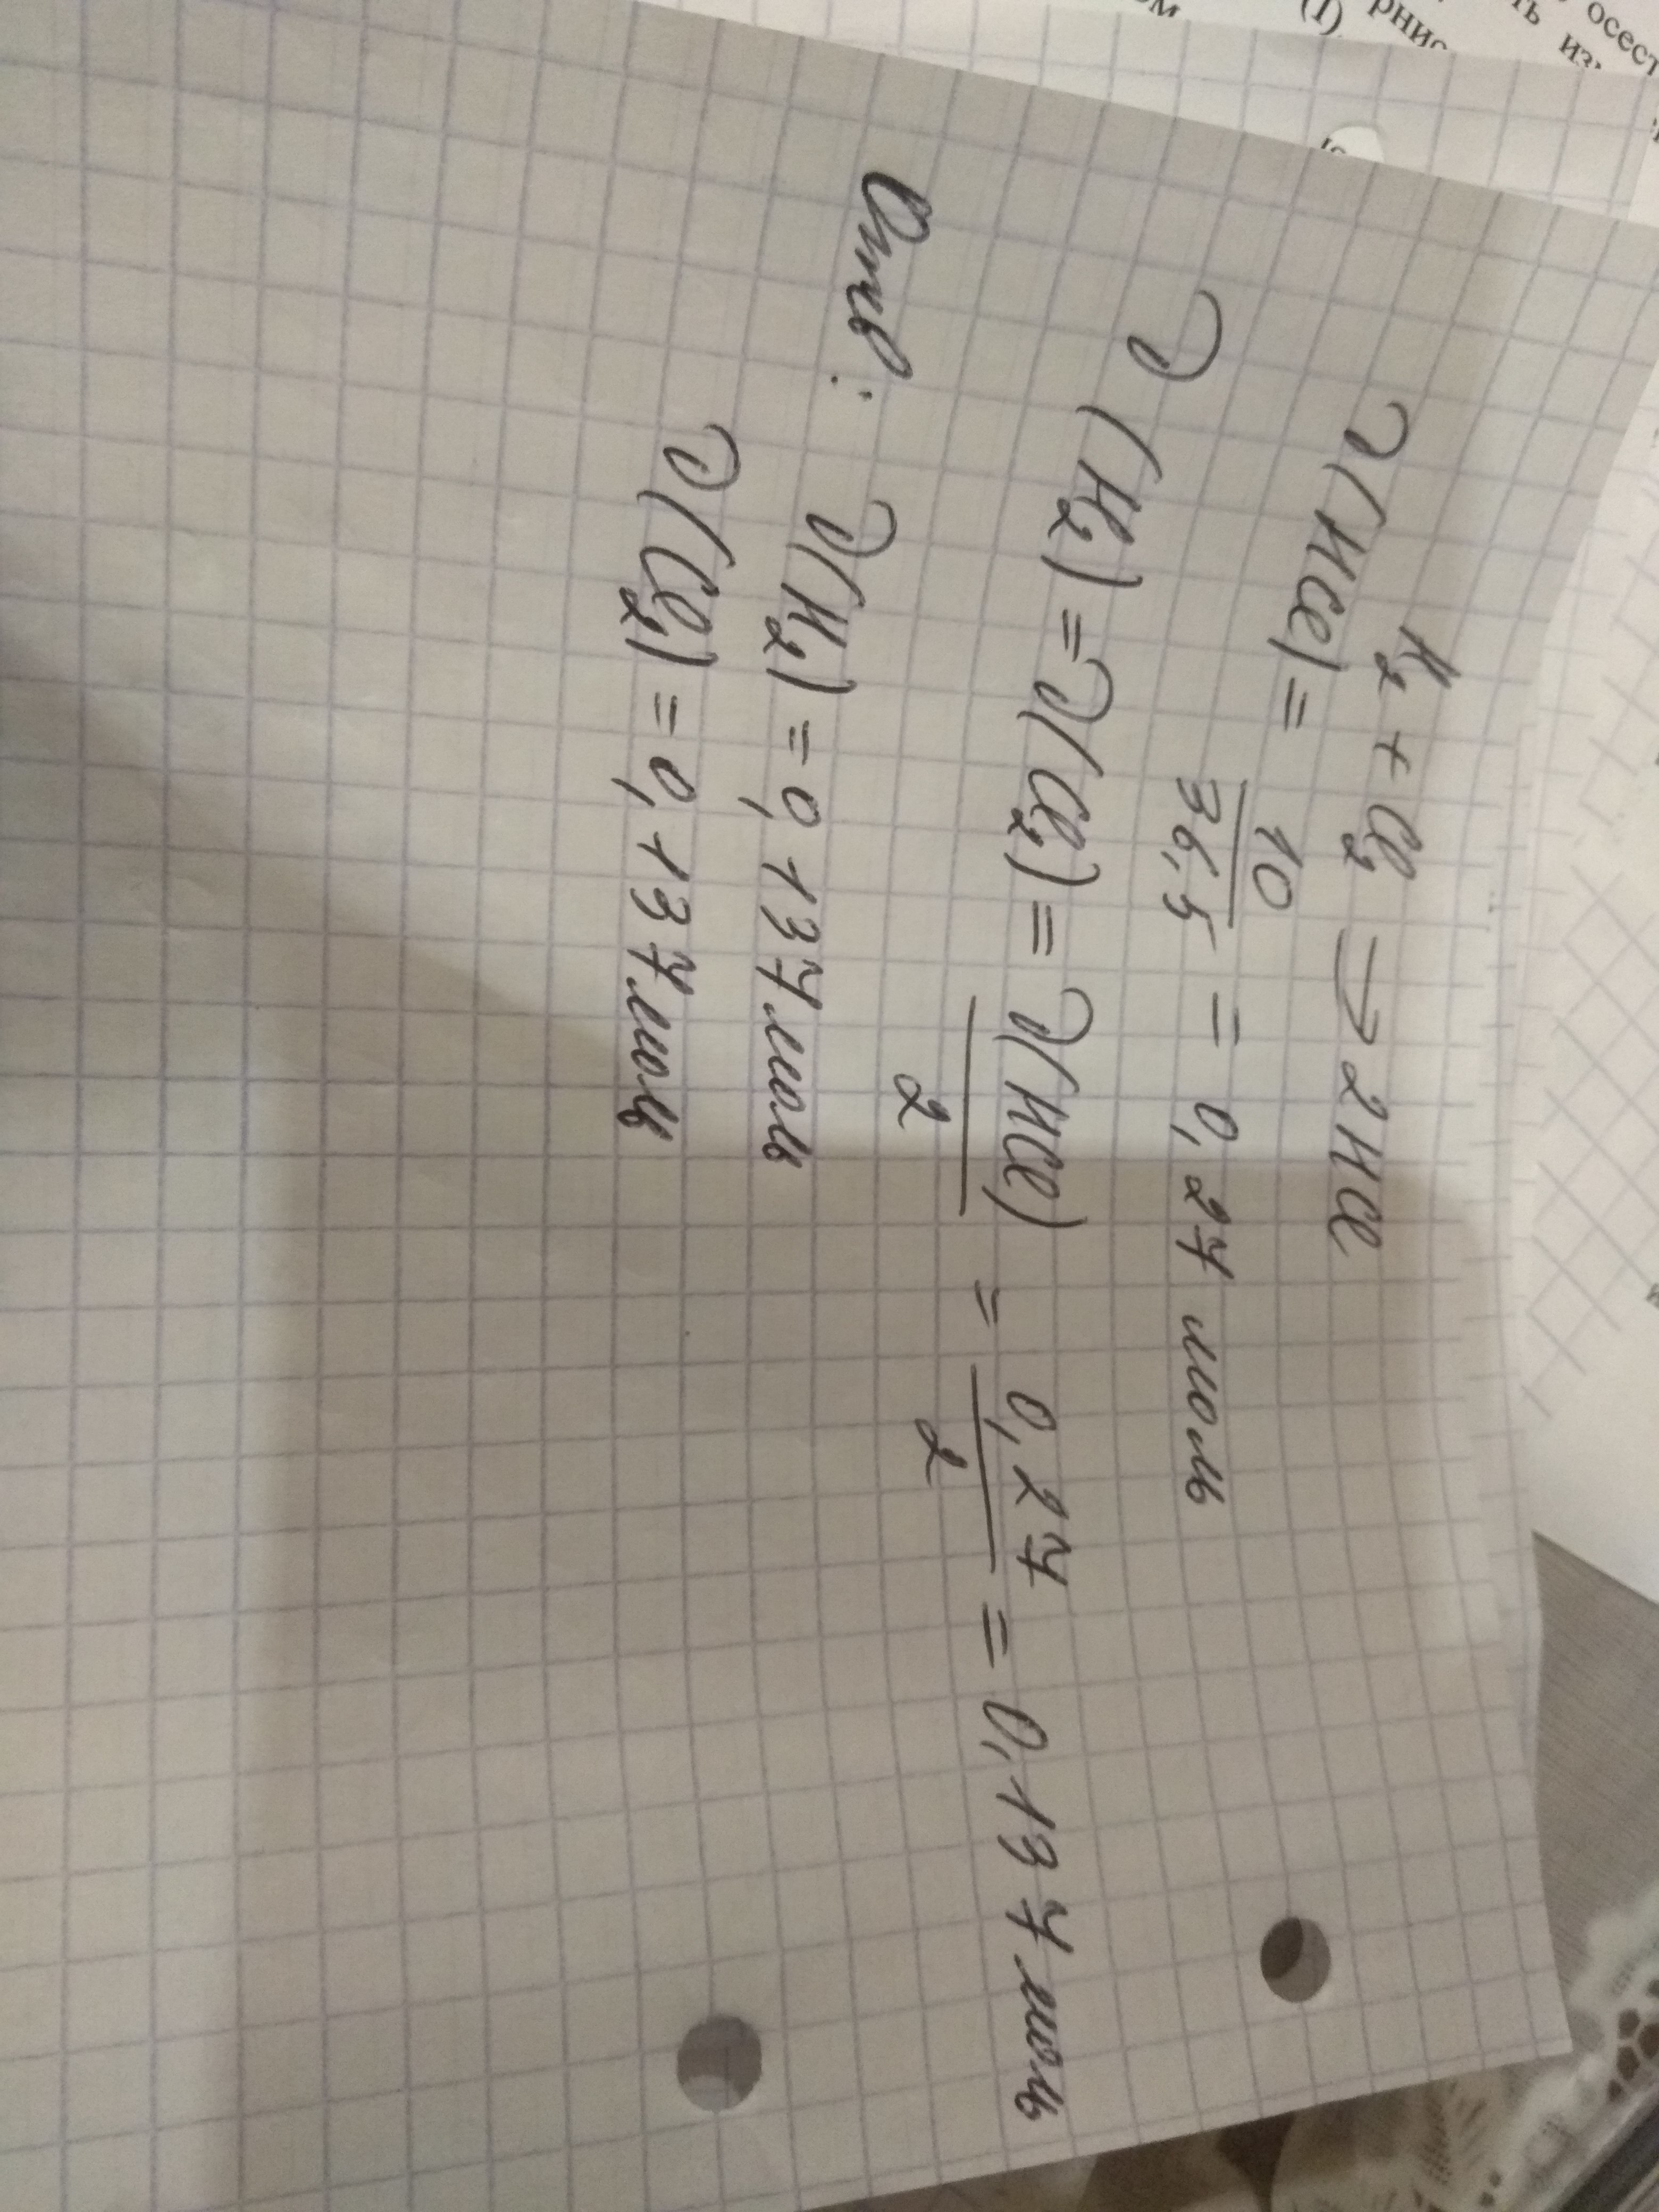 H₂ + Cl₂ → 2HCl
ν(HCl) = 10/36,5 = 0,27 моль
ν(H₂) = ν(Cl₂) = ν(HCl)/2 = 0,27/2 = 0,137 моль
Отв: ν(H₂) = 0,137 моль
ν(Cl₂) = 0,137 моль